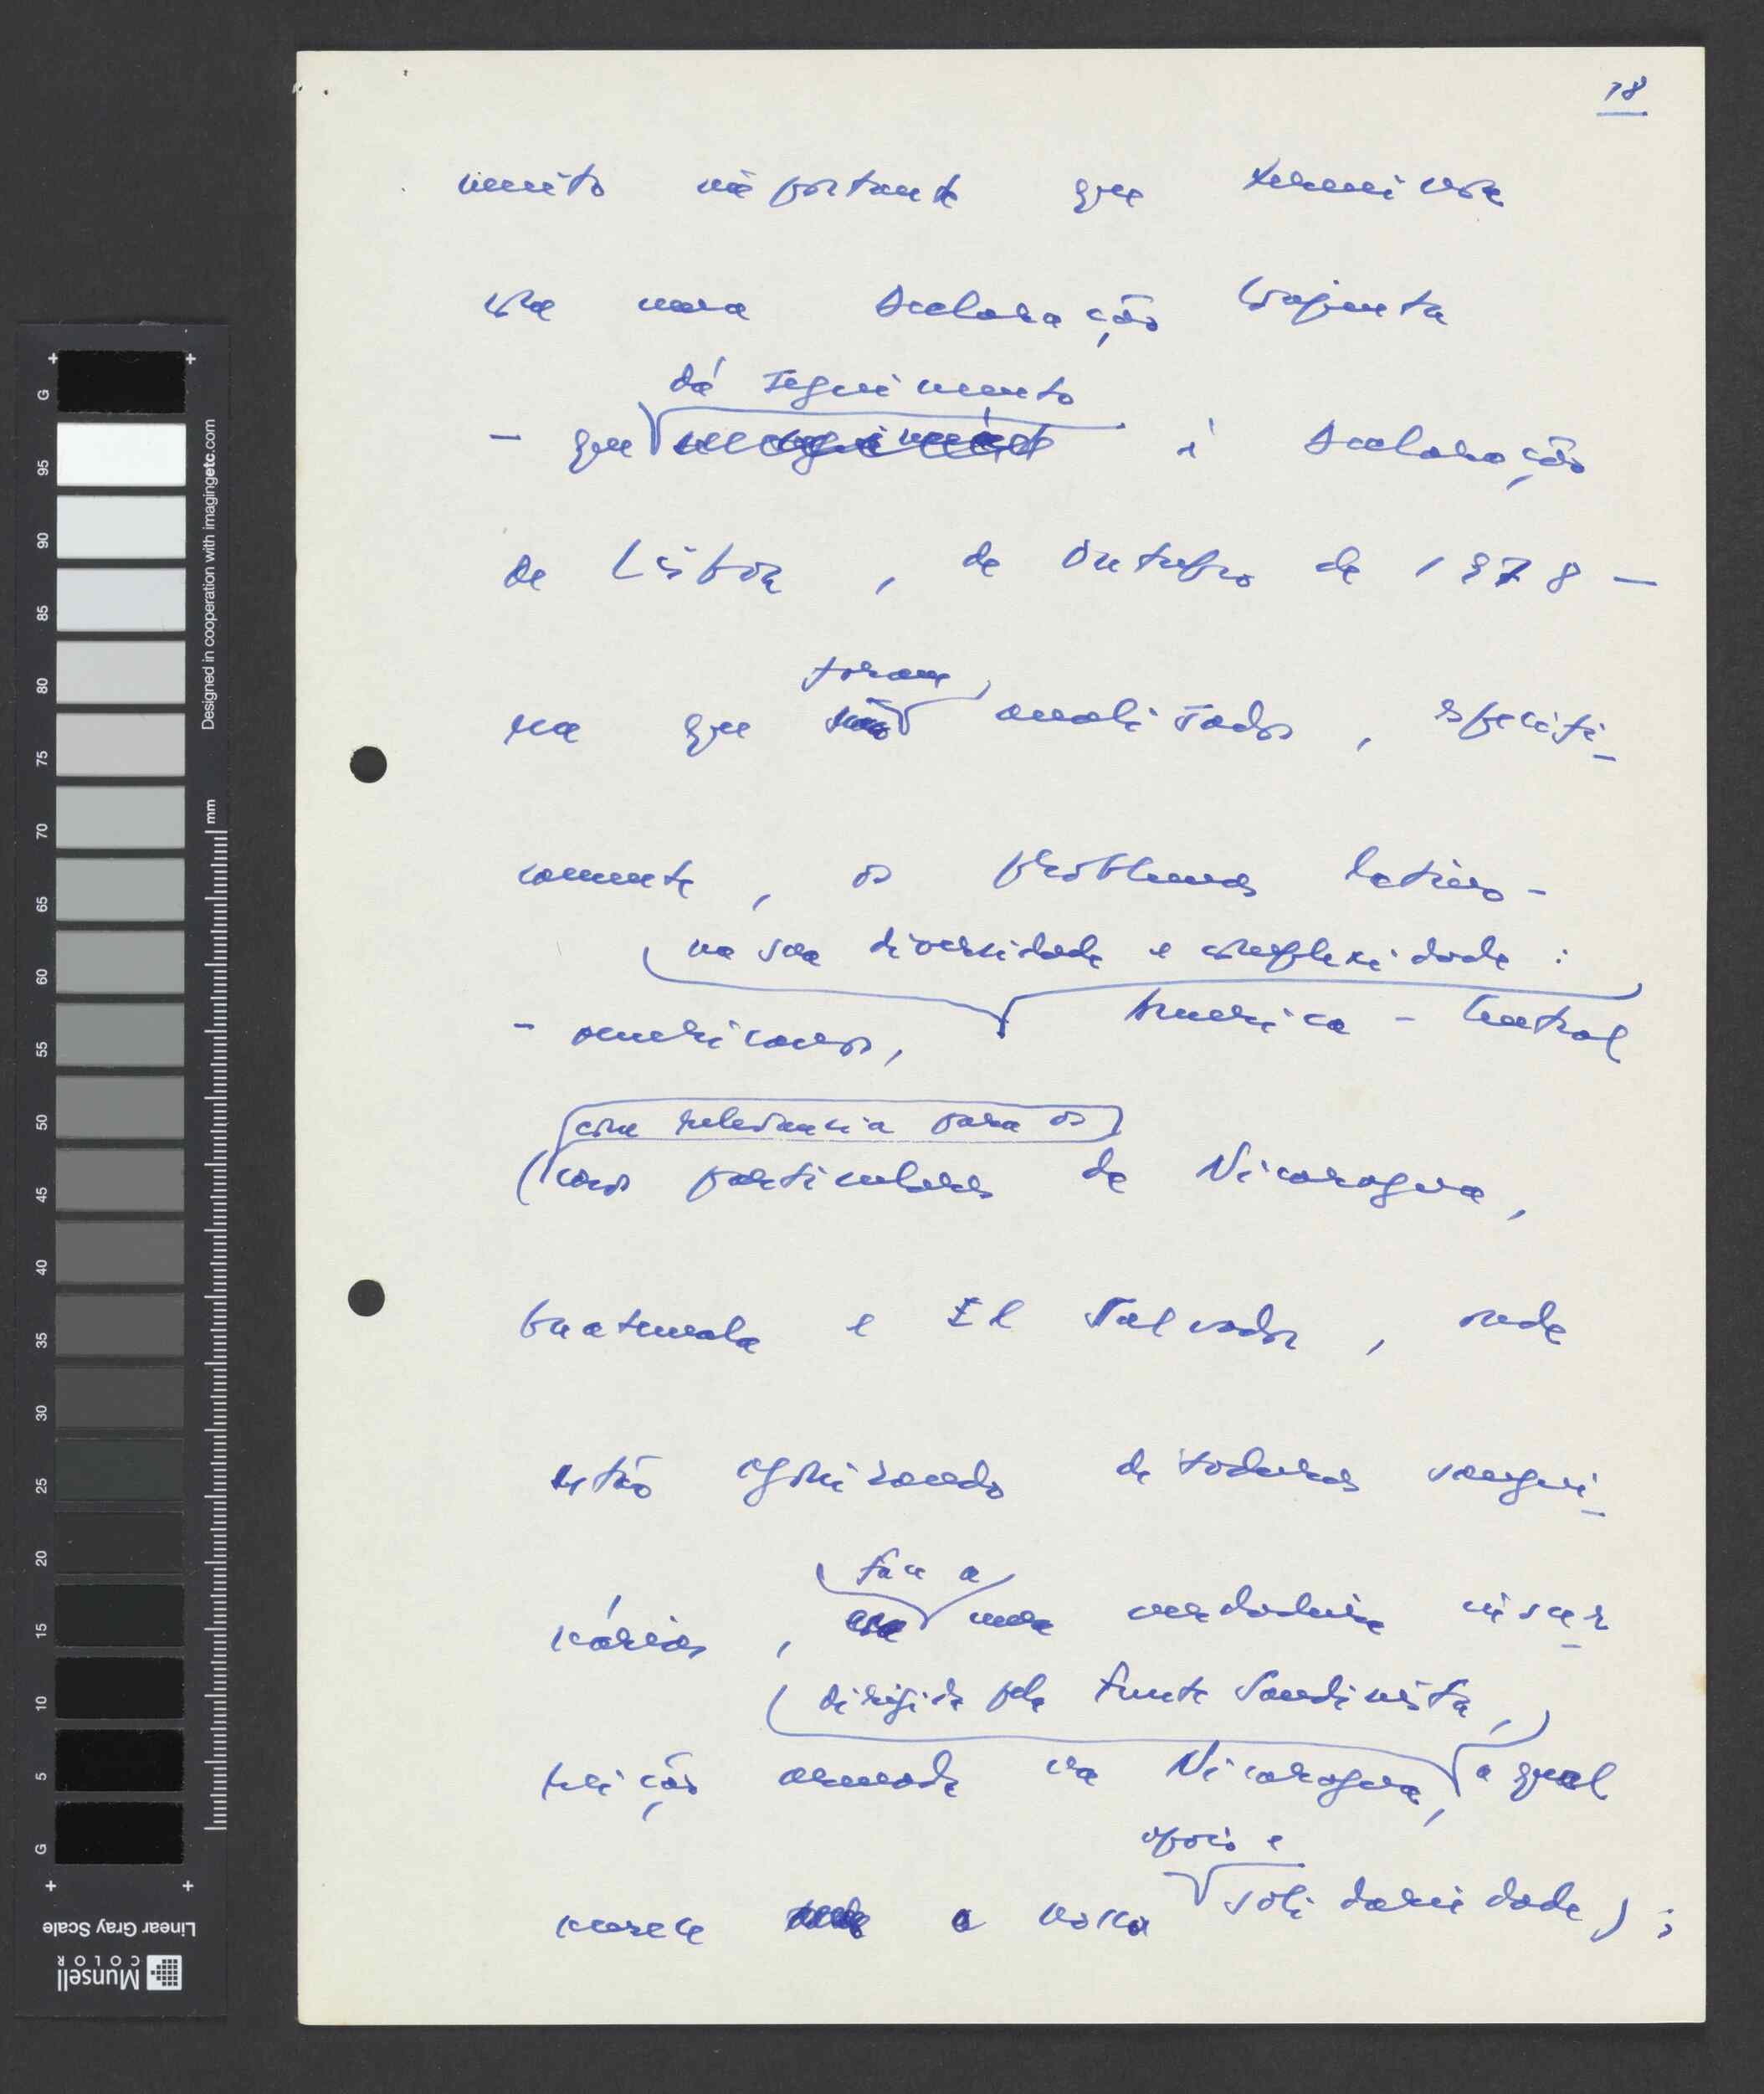 18
muito importante que terminou
com uma declaração conjunta
dá seguimento
- que à declaração
de Lisboa, de Outubro de 1978 -
em que foram analisados, especifi-
camente, os problemas latino-
na sua diversidade e complexidade:
- americanos, América-Central
com relevância para os
(casos particulares da Nicarágua,
Guatemala e El Salvador, onde
estão agonizando ditaduras sangui-
nárias, face a uma verdadeira insur-
dirigida pela Frente Sandinista,
reição armada na Nicarágua, a qual
apoio e
merece a nossa solidariedade);
G
95
90
85
80
75
70
65
60
55
50
45
40
35
30
25
20
15
10
5
G
mm
Designed in cooperation with imagingetc.com
Linear Gray Scale
Munsell
COLOR